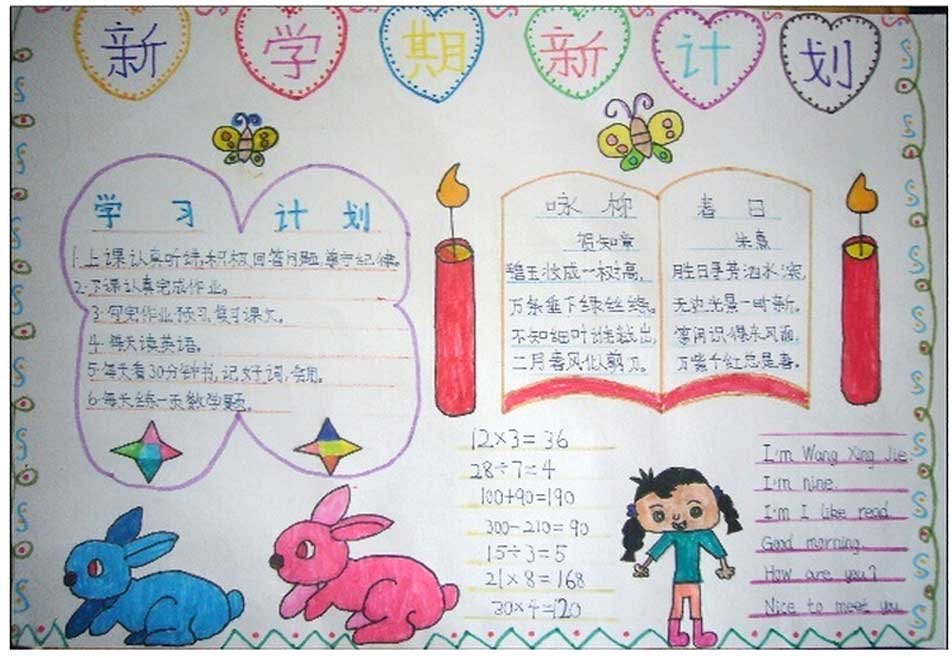 新学期新计划
学习计划
1.上课认真听讲,积极回答问题,遵守纪律。
2.下课认真完成作业。
3.写完作业预习复习课文。
4.每天读英语。
5.每天看30分钟书,记好词,会用。
6.每天练一天数学题。
咏柳
贺知章
碧玉妆成一树高,
万条垂下绿丝绦。
不知细叶谁裁出,
二月春风似剪刀。
春日
朱熹
胜日寻芳泗水滨,
无边光景一时新。
等闲识得东风面,
万紫千红总是春。
12×3=36
28÷7=4
100+90=190
300-210=90
15÷3=5
21×8=168
30×4=120
I'm Wang Xing Jie
I'm nine.
I'm I like read
Good morning.
How are you?
Nice to meet you